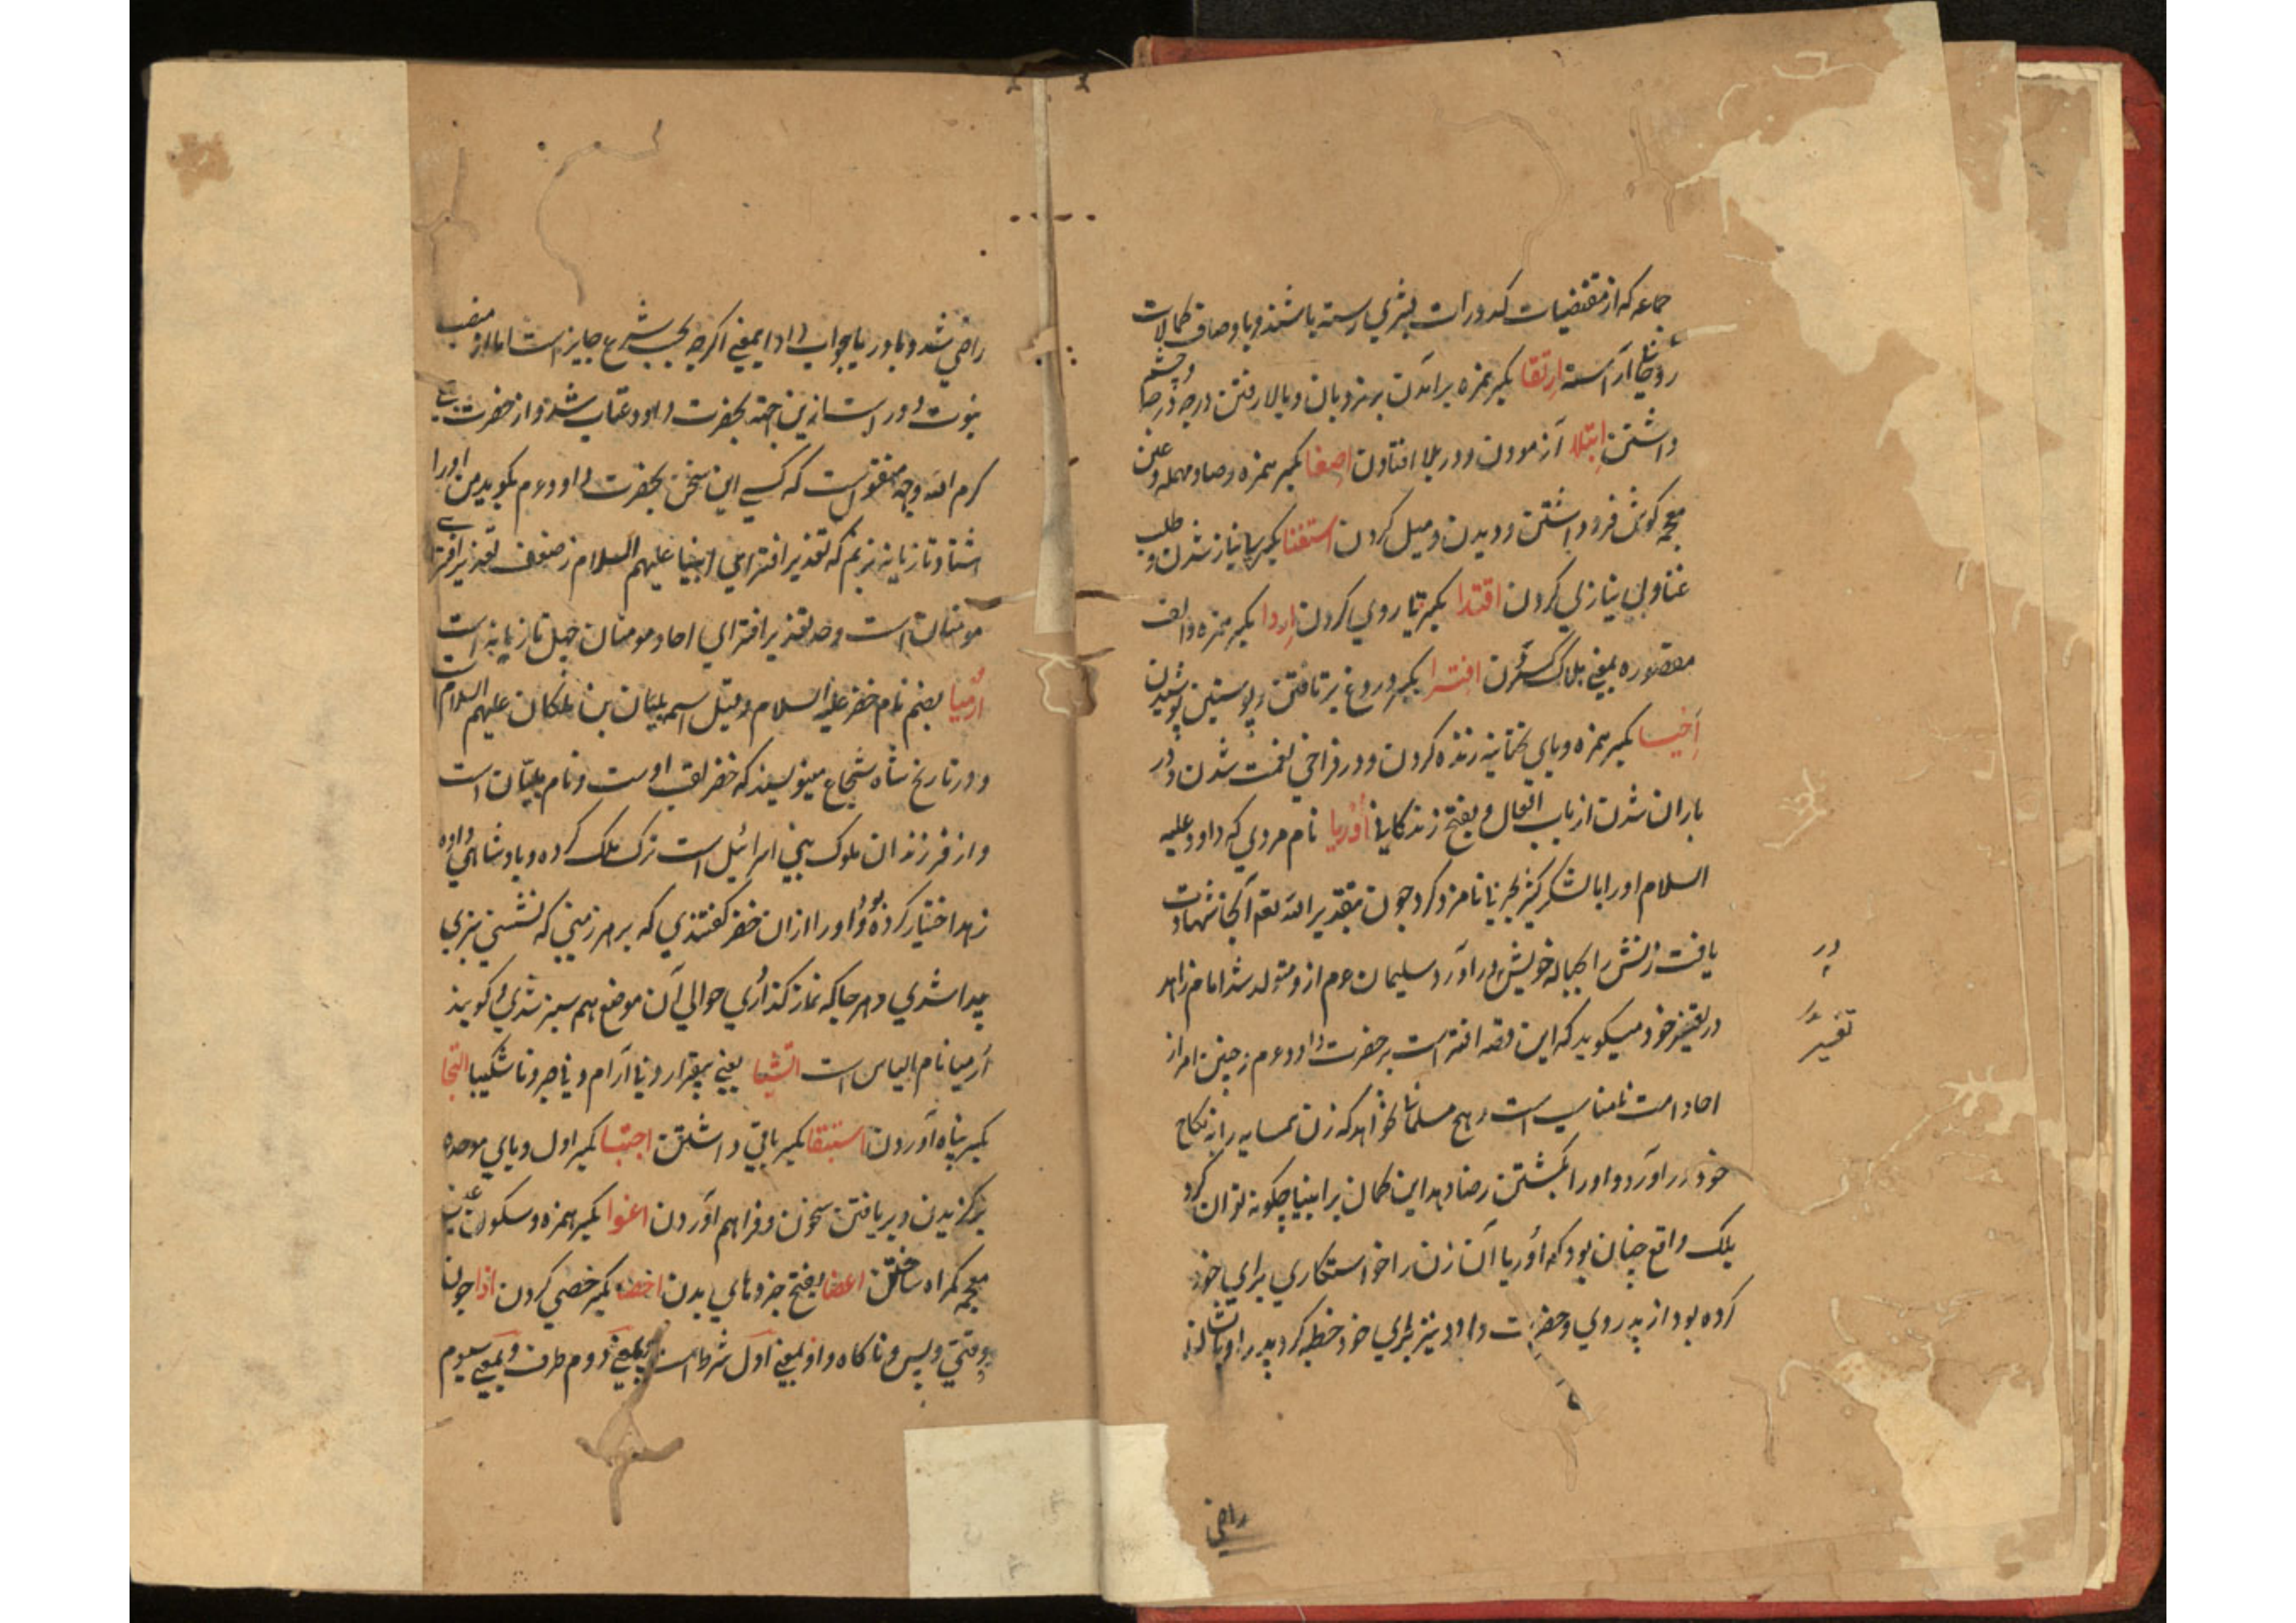 جماعه که از مقتضیات کدورات بشری رسته باشند و باوصاف کمالات
روحانی آراسته ارتقا بکسر همزه برآمدن بر نردبان و بالا رفتن درجه درجه و چشم
داشتن ابتلا آزمودن و در بلا افتادن اصغا بکسر همزه و صاد مهمله و غین
معجمه گوش فرو داشتن و دیدن و میل کردن استغنا بکسر بی نیاز شدن و طلب
غنا و بی نیازی کردن اقتدا بکسر تا روی کردن اردا بکسر همزه و الف
مقصوره بمعنی هلاک کردن افترا بکسر دروغ بر تافتن و پوستین پوشیدن
احیا بکسر همزه و یای تحتانیه زنده کردن و در فراخی نعمت شدن و در
باران شدن از باب افعال و بفتح زندگانی اوریا نام مردی که داود علیه
السلام او را با لشکر نامزد کرد چون بتقدیر الله تعم آنجا شهادت
یافت زنش را بحباله خویش در آورد سلیمان عم ازو متولد شد امام زاهد
در تفسیر خود میگوید که این قصه افتراست بر حضرت داود عم زچنین امر از
احاد امت نامناسب است هیچ مسلمان نخواهد که زن همسایه را به نکاح
خود در آورد و او را بکشتن رضا دهد این گمان بر انبیا چگونه توان کرد
بلک واقع چنان بود که اوریا آن زن را خواستگاری برای خود
کرده بود از پدر وی و حضرت داود نیز برای خود خطبه کرد پدر او
در
تفسیر
راضی
راضی شد و باوریا جواب داد این معنی اگرچه بحسب شرع جایز است اما از منصب
نبوت دور است ازین جهة بحضرت داود عتاب شد و از حضرت علی
کرم الله وجهه منقولست که کسی این سخن بحضرت داود عم بگوید من او را
هشتاد تازیانه بزنم که تعذیر افترای انبیا علیهم السلام ضعف تعذیر افترای
مومنان است و حد تعذیر افترای احاد مومنان چهل تازیانه است
ارمیا بضم نام خضر علیه السلام و قیل اسمه بلیان بن ملکان علیهم السلام
و در تاریخ شاه شجاع مینویسند که خضر لقب اوست و نام بلیان است
و از فرزندان ملوک بنی اسرائیل است ترک ملک کرده و بادشاهی داده
زهد اختیار کرده بود و او را ازان خضر گفتندی که بر هر زمینی که نشستی سبزی
پیدا شدی و هر جا که نماز گذاردی حوالی آن موضع هم سبز شدی و گویند
ارمیا نام الیاس است یعنی بیقرار و نا آرام و نا صبر و ناشکیبا التجا
بکسر پناه آوردن استبقا بکسر باقی داشتن اجتبا بکسر اول و بای موحده
برگزیدن و بر یافتن سخن و فراهم آوردن اغوا بکسر همزه و سکون غین
معجمه گمراه ساختن اعضا بفتح جزوهای بدن اخصا بکسر خصی کردن اذا چون
و وقتی و پس و ناگاه و اذ بمعنی اول شرط است و بمعنی دوم ظرف و بمعنی سیوم